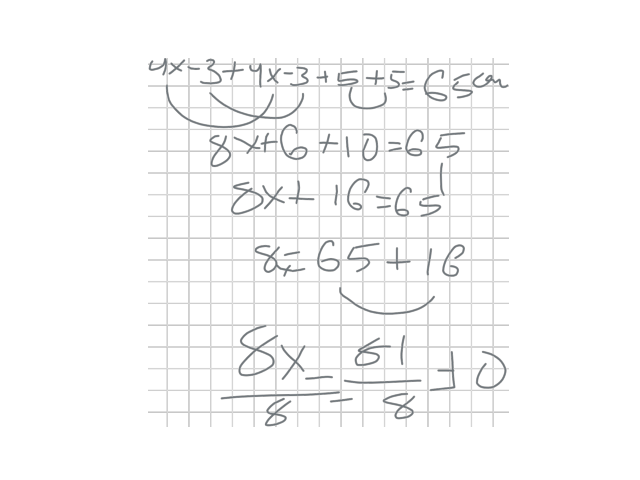 4x-3+4x-3+5+5=65cm
8x+6+10=65
8x+16=65
8x=65+16
8x = 81 =10
8 = 8